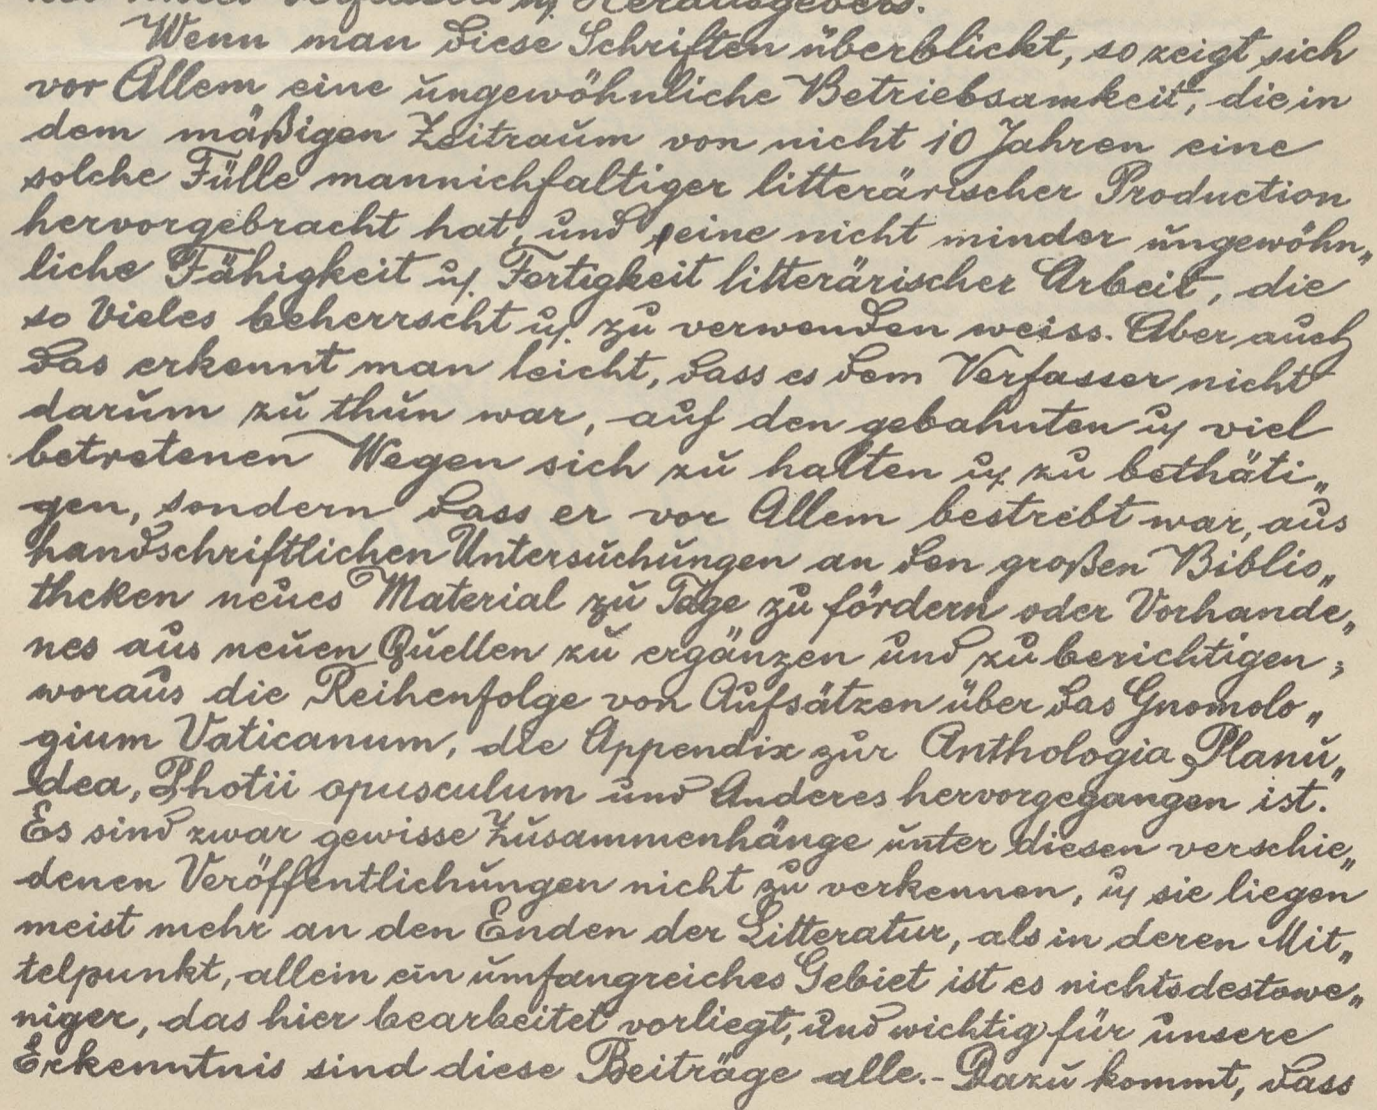 Herausgebers.
Wenn man diese Schriften überblickt, so zeigt sich
vor Allem eine ungewöhnliche Betriebsamkeit, die in
dem mäßigen Zeitraum von nicht 10 Jahren eine
solche Fülle mannichfaltiger litterärischer Production
hervorgebracht hat, und eine nicht minder ungewöhn„
liche Fähigkeit u. Fertigkeit litterärischer Arbeit, die
so Vieles beherrscht u. zu verwenden weiss. Aber auch
das erkennt man leicht, dass es dem Verfasser nicht
darum zu thun war, auf den gebahnten u. viel
betretenen Wegen sich zu halten u. zu bethäti„
gen, sondern dass er vor Allem bestrebt war, aus
handschriftlichen Untersuchungen an den großen Biblio„
theken neues Material zu Tage zu fördern oder Vorhande„
nes aus neuen Quellen zu ergänzen und zu berichtigen;
woraus die Reihenfolge von Aufsätzen über das Gnomolo„
gium Vaticanum, die Appendix zur Anthologia Planu„
dea, Photii opusculum und Anderes hervorgegangen ist.
Es sind zwar gewisse Zusammenhänge unter diesen verschie„
denen Veröffentlichungen nicht zu verkennen, u. sie liegen
meist mehr an den Enden der Litteratur, als in deren Mit„
telpunkt, allein ein umfangreiches Gebiet ist es nichtsdestowe„
niger, das hier bearbeitet vorliegt, und wichtig für unsere
Erkenntnis sind diese Beiträge alle.- Dazu kommt, dass